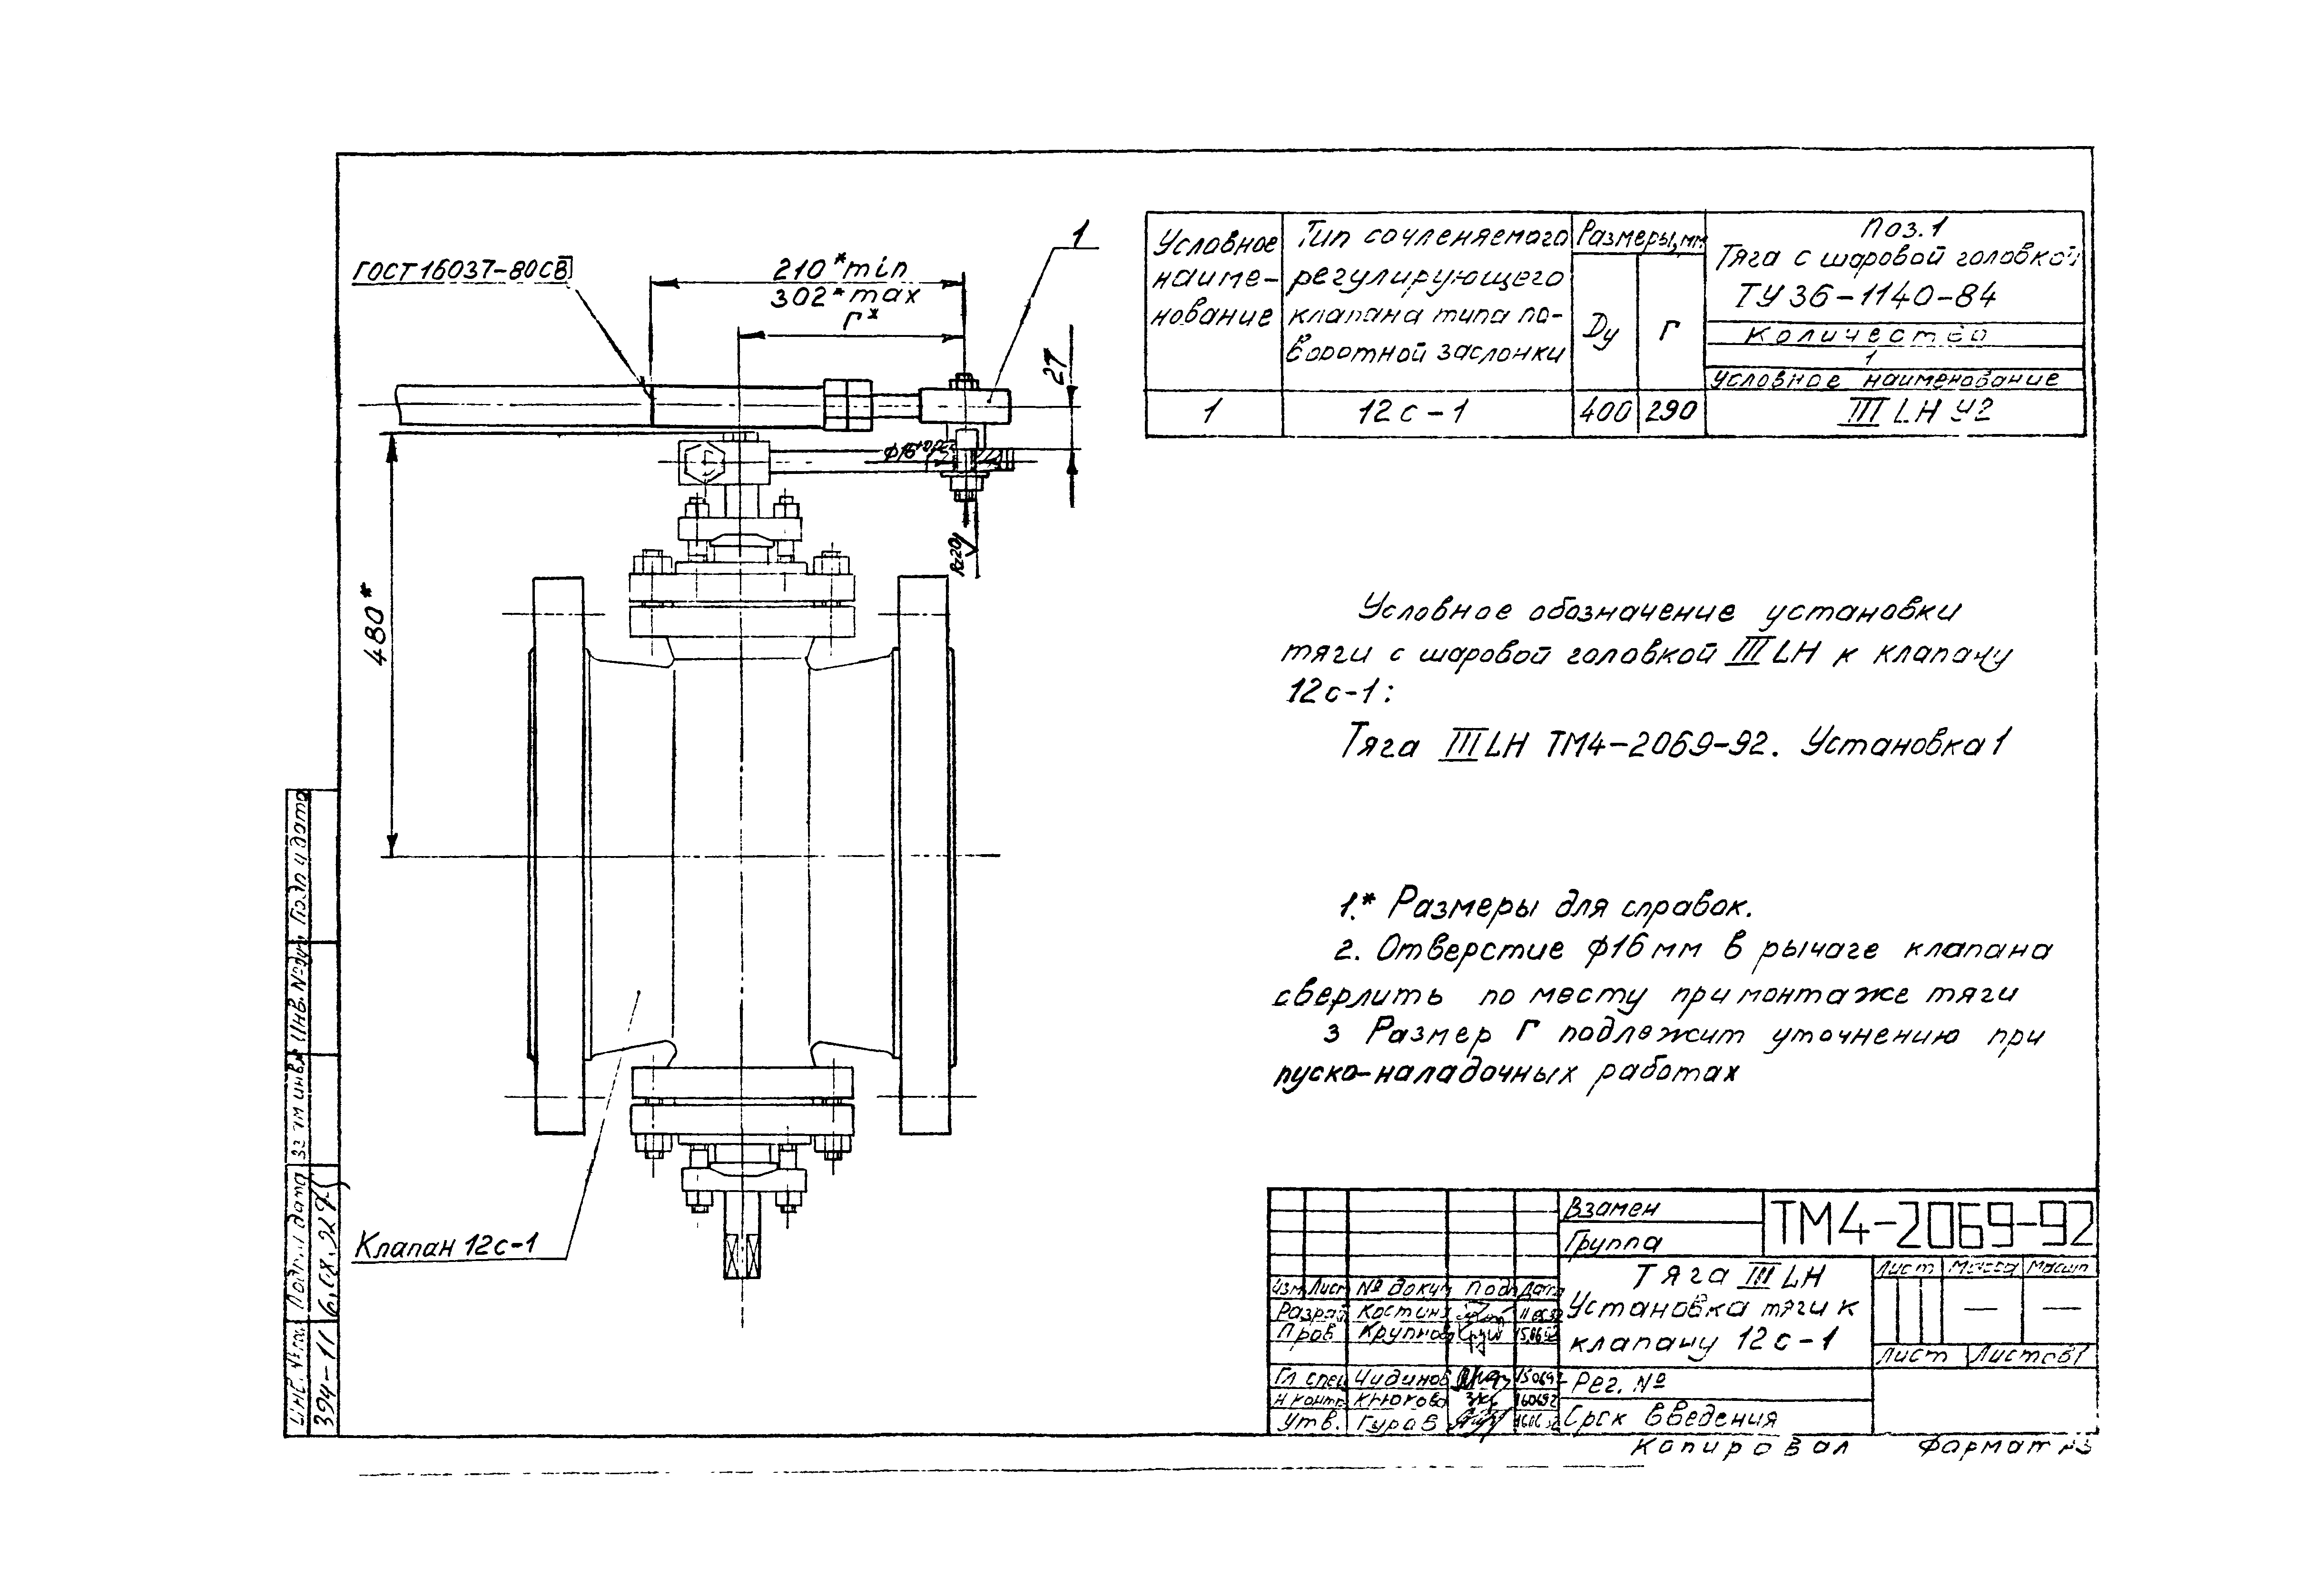 ГОСТ 16037-80 СВ
210* min
302* max
Г*
1
27
480*
Rz20
Клапан 12с-1
Условное наименование
Тип сочленяемого регулирующего клапана типа поворотной заслонки
Размеры, мм
Dy
Г
Поз. 1
Тяга с шаровой головкой
ТУ 36-1140-84
Количество
1
Условное наименование
1
12с-1
400
290
III LH У2
Условное обозначение установки
тяги с шаровой головкой III LH к клапану
12с-1:
Тяга III LH ТМ4-2069-92. Установка 1
1.* Размеры для справок.
2. Отверстие ϕ16 мм в рычаге клапана
сверлить по месту при монтаже тяги
3 Размер Г подлежит уточнению при
пуско-наладочных работах
Взамен
Группа
ТМ4-2069-92
Тяга III LH
Установка тяги к
клапану 12с-1
Лист Масса Масшт
— —
Лист Листов 1
Изм Лист № докум Подп Дата
Разраб Костин
Пров Крупнов
Гл спец Чидинов 150692
Н контр Крюкова 160692
Утв. Гуров
Рег. №
Срок введения
Копировал Формат А3
Подп и дата
Инв. № дубл
Взам инв. №
Подп и дата
Инв. № подл
394-11